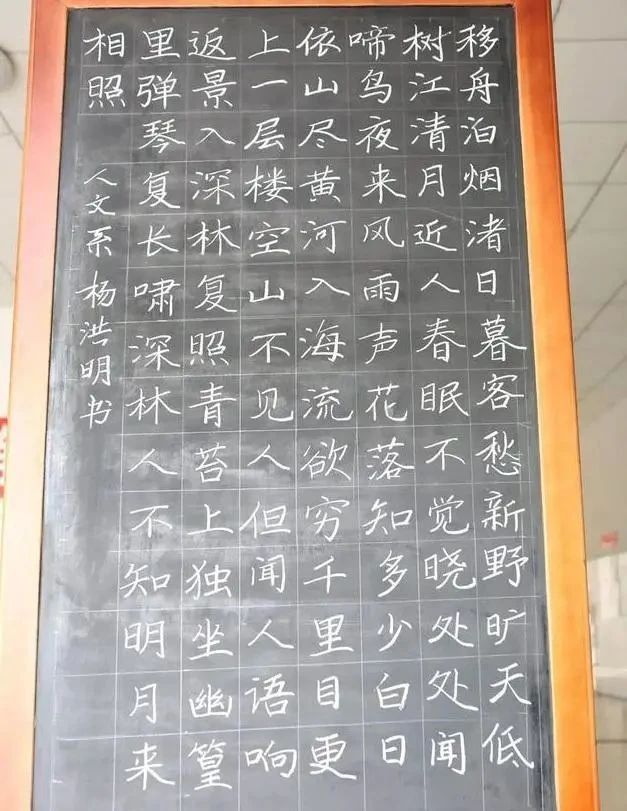 移舟泊烟渚日暮客愁新野旷天低
树江清月近人春眠不觉晓处处闻
啼鸟夜来风雨声花落知多少白日
依山尽黄河入海流欲穷千里目更
上一层楼空山不见人但闻人语响
返景入深林复照青苔上独坐幽篁
里弹琴复长啸深林人不知明月来
相照
人文系杨洪明书